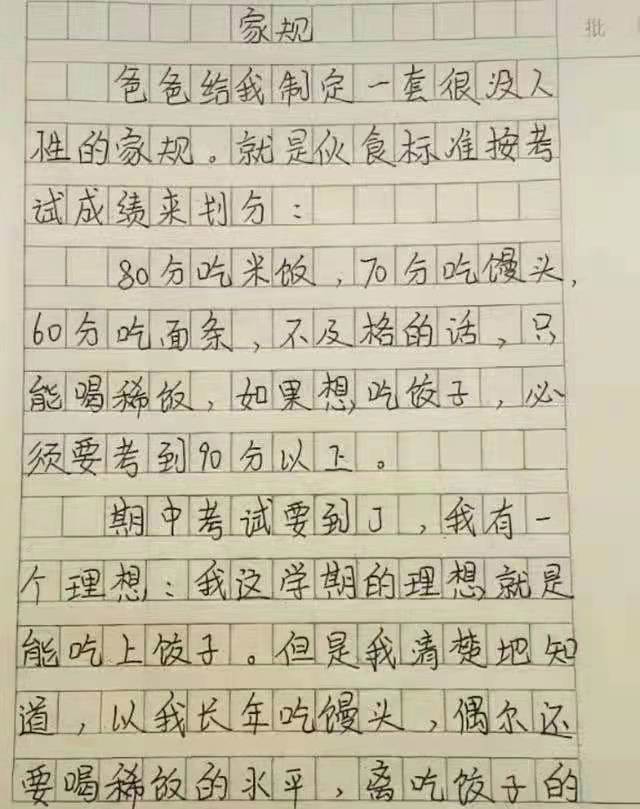 家规
批
爸爸给我制定一套很没人
性的家规。就是伙食标准按考
试成绩来划分：
80分吃米饭，70分吃馒头，
60分吃面条，不及格的话，只
能喝稀饭，如果想吃饺子，必
须要考到90分以上。
期中考试要到了，我有一
个理想：我这学期的理想就是
能吃上饺子。但是我清楚地知
道，以我长年吃馒头，偶尔还
要喝稀饭的水平，离吃饺子的